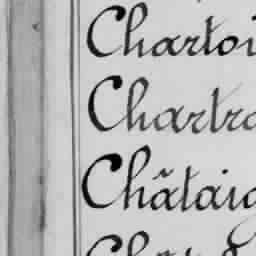 Chartoi
Chartra
Châtaig